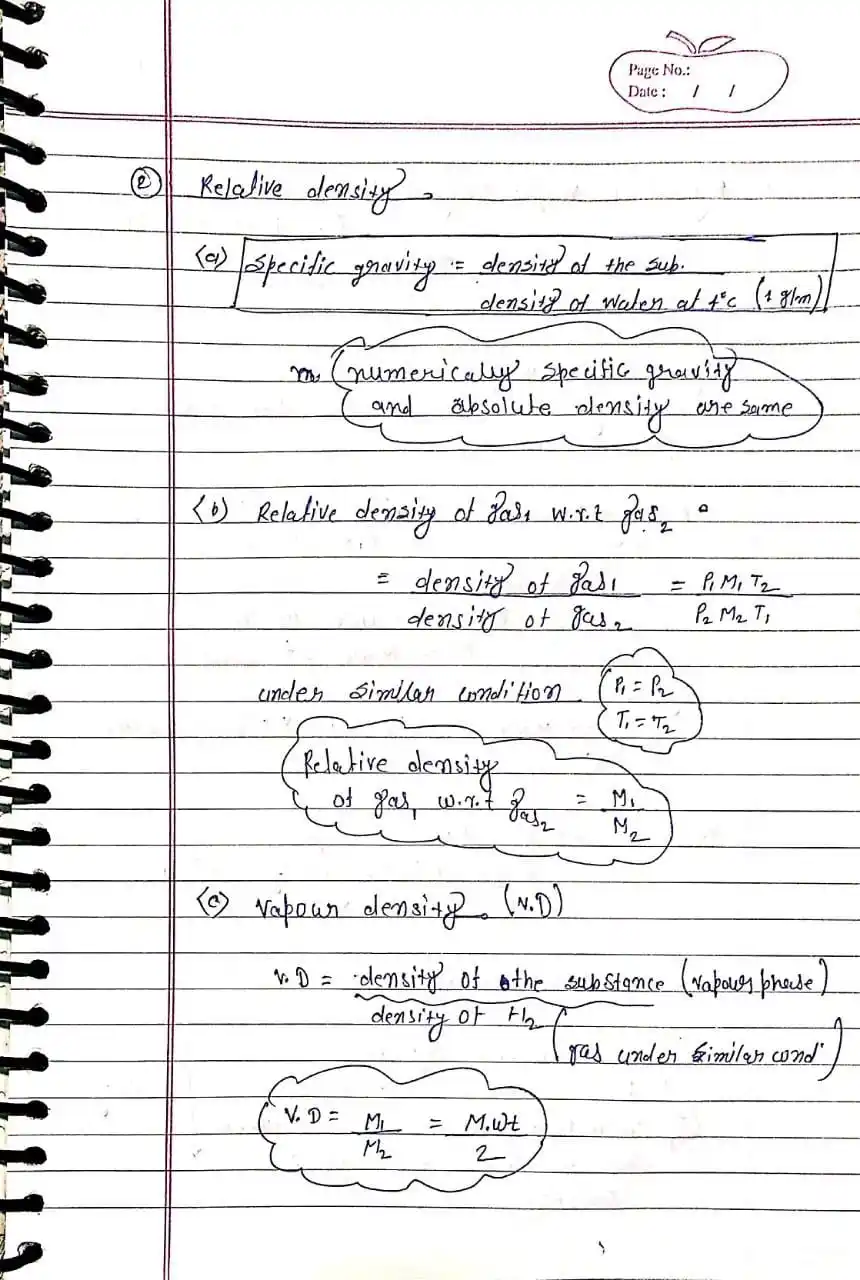 Page No.:
Date : / /
② Relative density
(a) Specific gravity = density of the sub.
density of water at 4°c (1 g/m)
numerically specific gravity
and absolute density are same
(b) Relative density of gas1 w.r.t gas2
= density of gas1 = P1 M1 T2
density of gas2 P2 M2 T1
under similar condition P1 = P2
T1 = T2
Relative density
of gas1 w.r.t gas2 = M1
M2
(c) vapour density. (V.D)
V.D = density of the substance (vapours phase)
density of H2
(gas under similar cond')
V.D = M1 = M.wt
M2 2